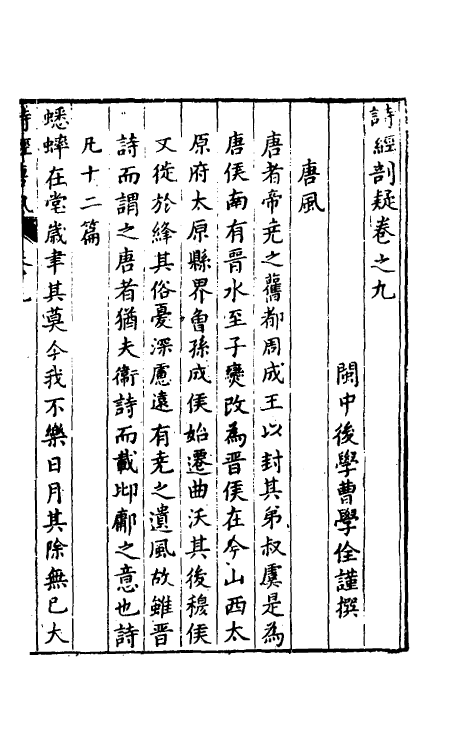 詩經剖疑卷之九
閩中後學曹學佺謹撰
唐風
唐者帝堯之舊都周成王以封其弟叔虞是為
唐侯南有晉水至子燮改為晉侯在今山西太
原府太原縣界曾孫成侯始遷曲沃其後穆侯
又徙於絳其俗憂深慮遠有堯之遺風故雖晉
詩而謂之唐者猶夫衞詩而載邶鄘之意也詩
凡十二篇
蟋蟀在堂歲聿其莫今我不樂日月其除無已大
詩經唐風